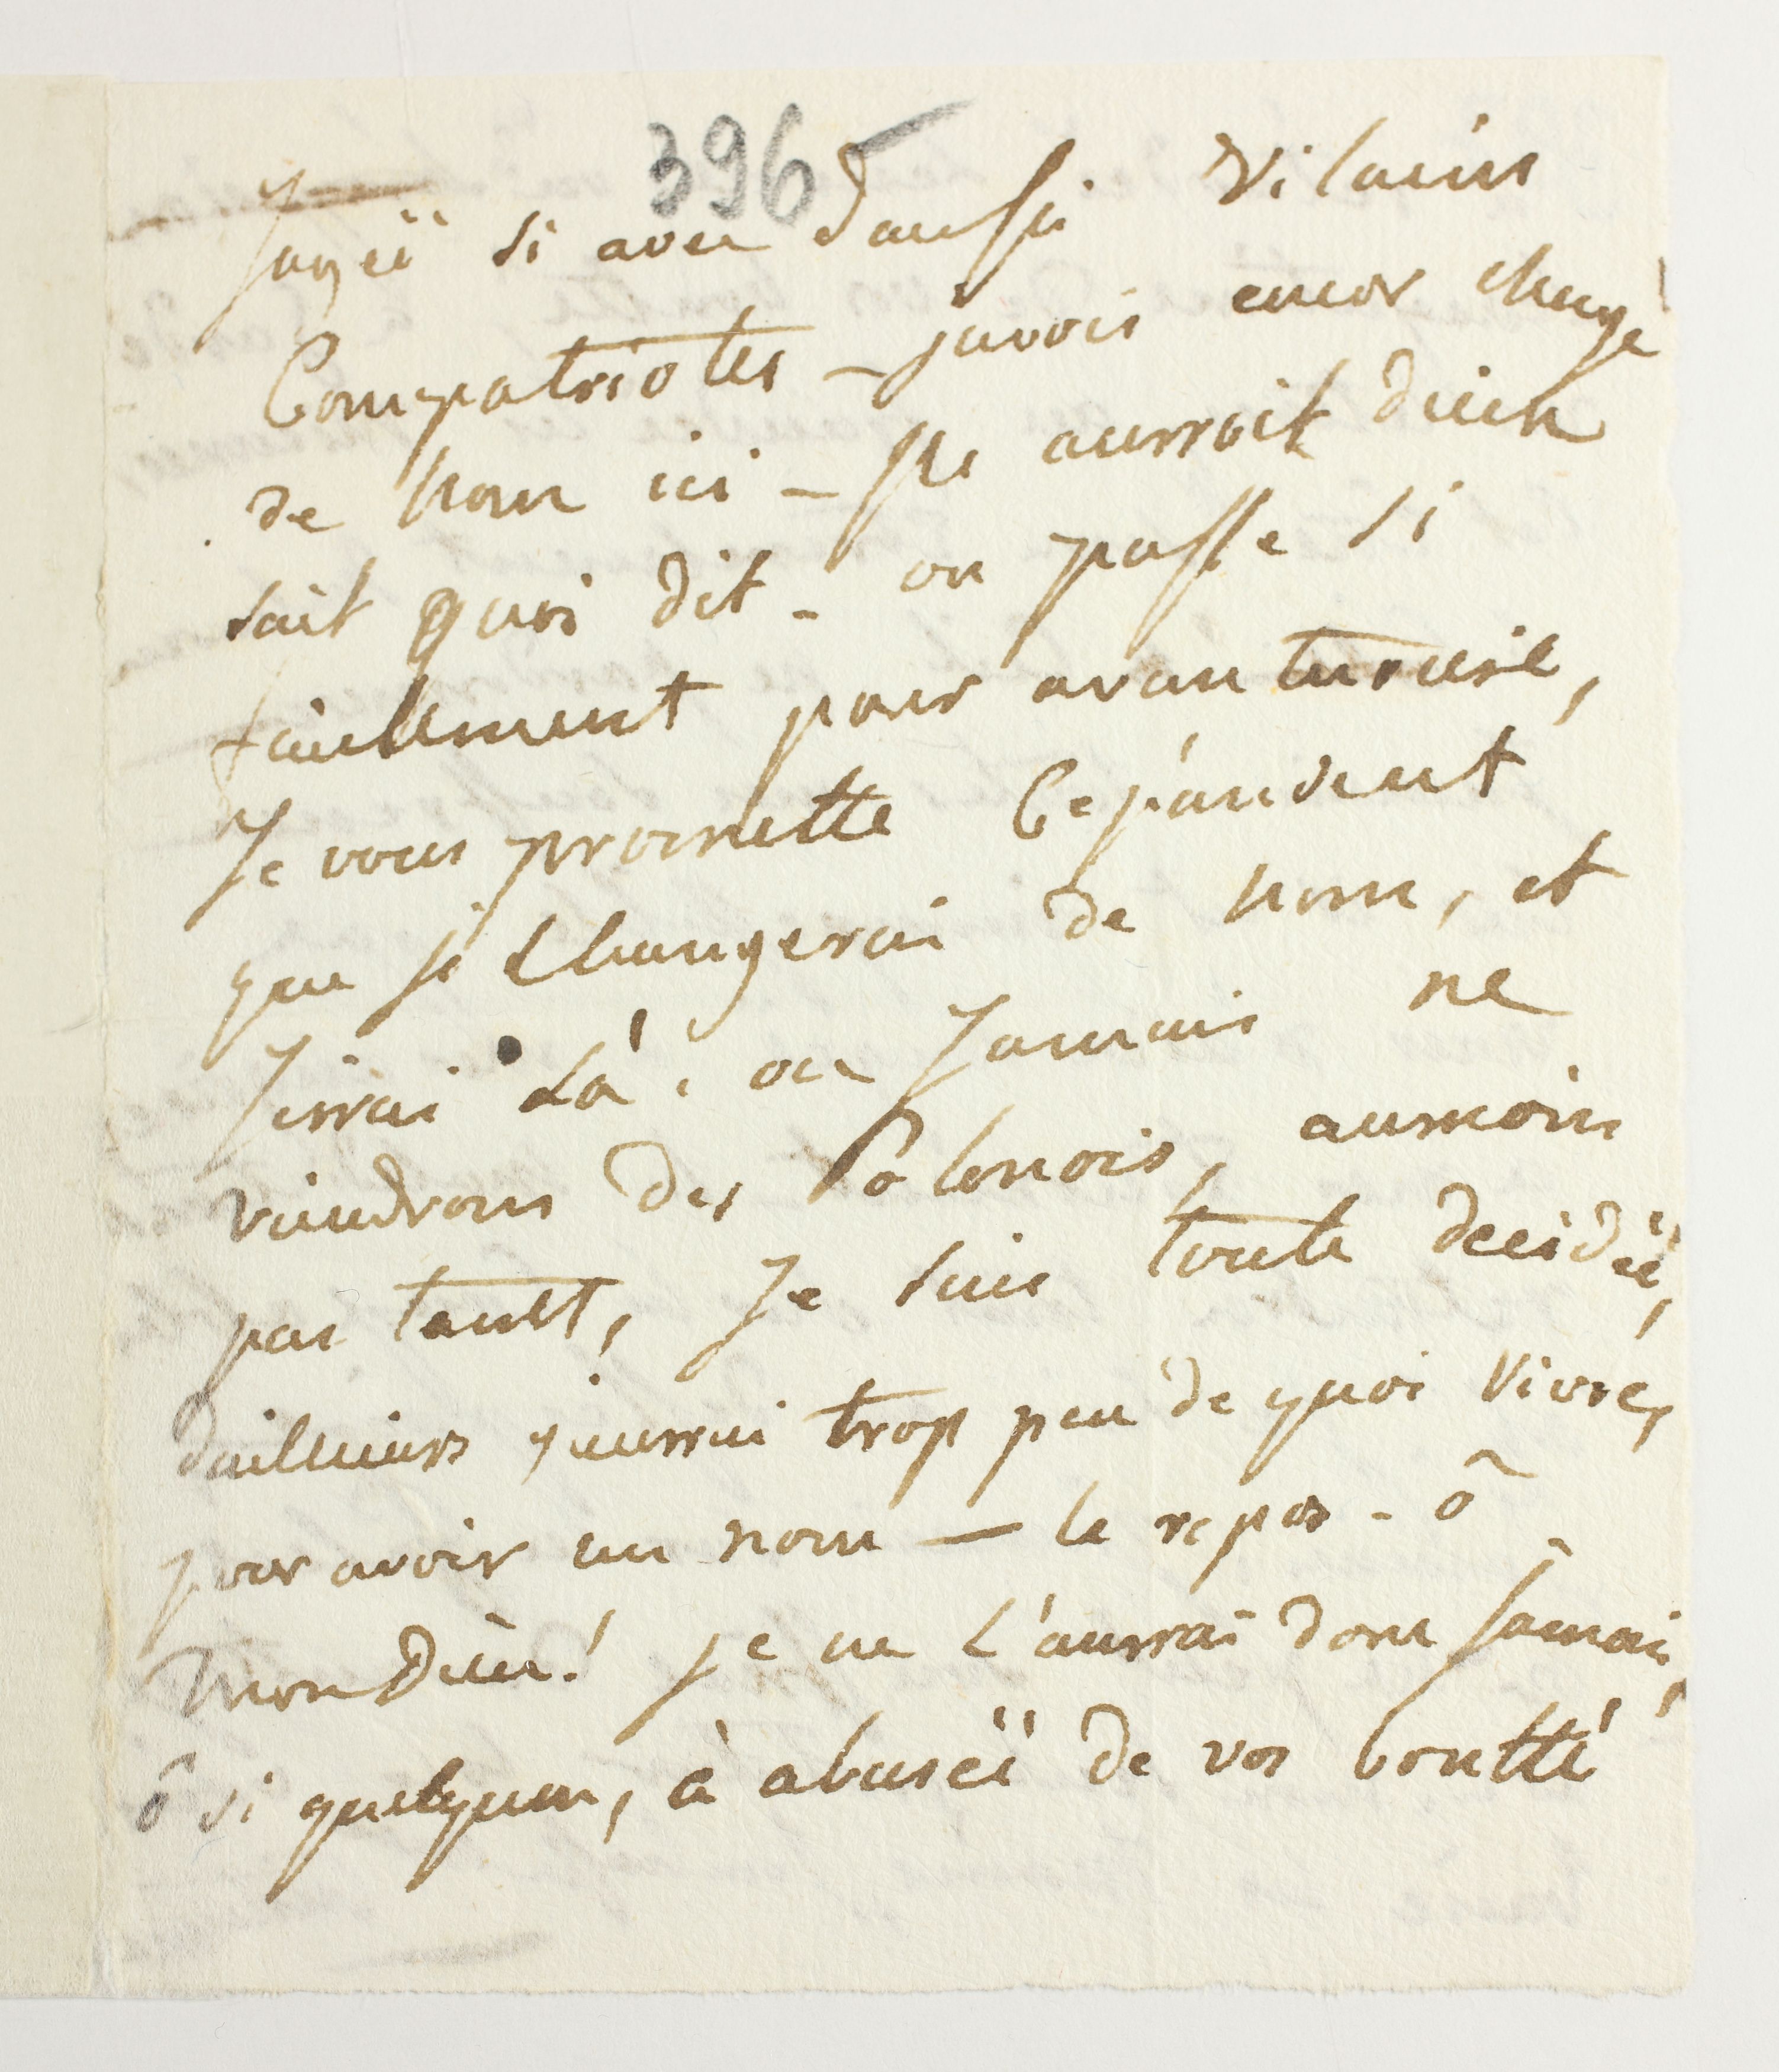 396
Jugéë si avec daussi vilains
Compatriotes – javois encor changé
de nom ici – sils aurroit dieu
sait quoi dit – on passe si
facillement pour avanturuse,
Je vous promette Cepándent
que si changerai de nom, et
Jirrai là, ou Jamais ne
viendrons des Pôlonois, aumoins
pas tantt, Je suis toute decidéë,
dailluiurs j'aurrai trop peu de quoi vivre,
pour avoir un nom — le repos – ô
mon Dieu! je ne l'aurrai donc Jamais,
ô si quelquun, à abuséë de vos bontté